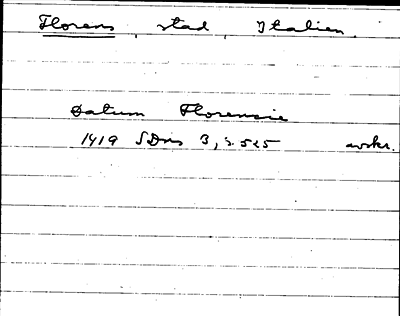 Florens, stad, Italien.
Datum Florencie
1419 SDns 3, s. 525 avskr.